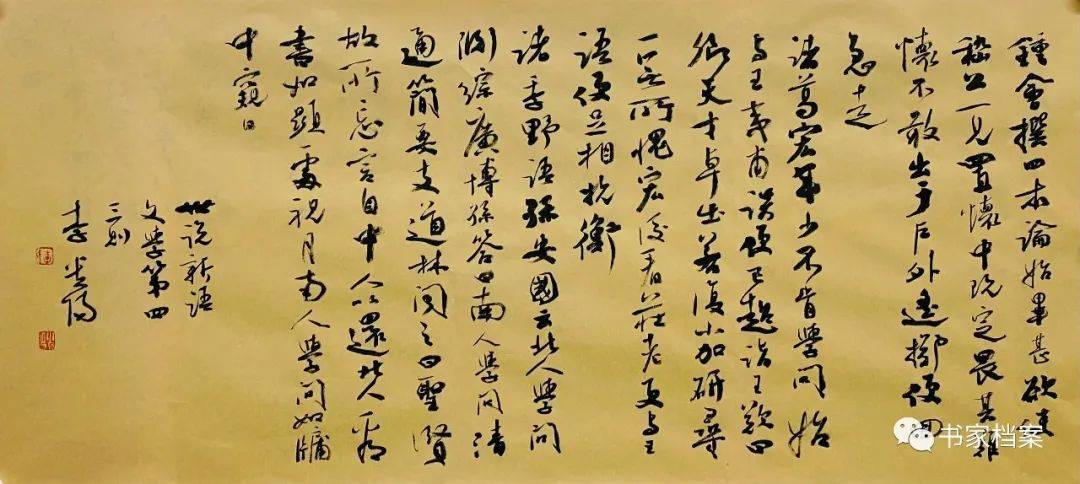 鍾會撰四本論始畢甚欲使
嵇公一見置懷中既定畏其難
懷不敢出于戶外遙擲便回
急走
諸葛宏年少不肯學問始
与王夷甫談便已超詣王歎曰
卿天才卓出若復小加研尋
一无所愧宏後看莊老更与王
語便足相抗衡
褚季野語孫安國云北人學問
淵綜廣博孫答曰南人學問清
通簡要支道林聞之曰聖賢
故所忘言自中人以還北人看
書如顯處視月南人學問如牖
中窺日
世說新語
文學第四
三則
李
书家档案